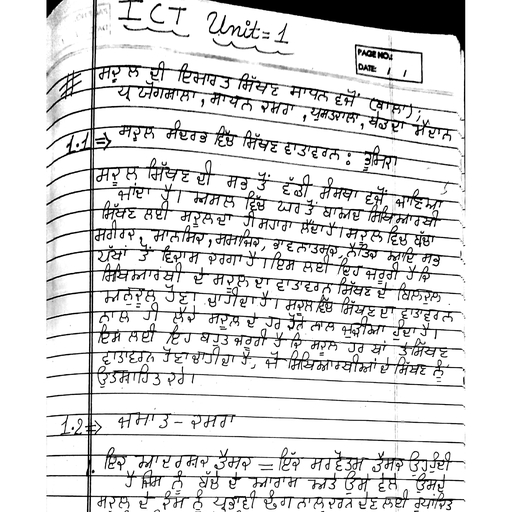 ICT Unit=1
PAGE NO.:
DATE: / /
# ਸਕੂਲ ਦੀ ਇਮਾਰਤ ਸਿੱਖਣ ਸਾਧਨ ਵਜੋਂ (ਬਾਲਾ);
ਪ੍ਰਯੋਗਸ਼ਾਲਾ, ਸਾਧਨ ਕਮਰਾ, ਪੁਸਤਕਾਲਾ, ਖੇਡ ਦਾ ਮੈਦਾਨ
1.1 ⇒ ਸਕੂਲ ਸੰਦਰਭ ਵਿੱਚ ਸਿੱਖਣ ਵਾਤਾਵਰਨ : ਭੂਮਿਕਾ
ਸਕੂਲ ਸਿੱਖਣ ਦੀ ਸਭ ਤੋਂ ਵੱਡੀ ਸੰਸਥਾ ਵਜੋਂ ਜਾਣਿਆ
ਜਾਂਦਾ ਹੈ। ਅਸਲ ਵਿੱਚ ਘਰ ਤੋਂ ਬਾਅਦ ਸਿਖਿਆਰਥੀ
ਸਿੱਖਣ ਲਈ ਸਕੂਲ ਦਾ ਹੀ ਸਹਾਰਾ ਲੈਂਦਾ ਹੈ। ਸਕੂਲ ਵਿਚ ਬੱਚਾ
ਸਰੀਰਕ, ਮਾਨਸਿਕ, ਸਮਾਜਿਕ, ਭਾਵਨਾਤਮਕ, ਨੈਤਿਕ ਆਦਿ ਸਭ
ਪੱਖਾਂ ਤੋਂ ਵਿਕਾਸ ਕਰਦਾ ਹੈ। ਇਸ ਲਈ ਇਹ ਜ਼ਰੂਰੀ ਹੈ ਕਿ
ਸਿਖਿਆਰਥੀ ਦੇ ਸਕੂਲ ਦਾ ਵਾਤਾਵਰਨ ਸਿੱਖਣ ਦੇ ਬਿਲਕੁਲ
ਅਨੁਕੂਲ ਹੋਣਾ ਚਾਹੀਦਾ ਹੈ। ਸਕੂਲ ਵਿੱਚ ਸਿੱਖਣ ਦਾ ਵਾਤਾਵਰਨ
ਨਾਲ ਹੀ ਸਕੂਲ ਦੇ ਹਰ ਕੋਨੇ ਨਾਲ ਜੁੜਿਆ ਹੁੰਦਾ ਹੈ।
ਇਸ ਲਈ ਇਹ ਬਹੁਤ ਜ਼ਰੂਰੀ ਹੈ ਕਿ ਸਕੂਲ ਹਰ ਥਾਂ ਤੋਂ ਸਿੱਖਣ
ਵਾਤਾਵਰਨ ਹੋਣਾ ਚਾਹੀਦਾ ਹੈ, ਜੋ ਸਿਖਿਆਰਥੀਆਂ ਦੇ ਸਿੱਖਣ ਨੂੰ
ਉਤਸ਼ਾਹਿਤ ਕਰੇ।
1.2 ⇒ ਜਮਾਤ - ਕਮਰਾ
ਇਕ ਆਦਰਸ਼ਕ ਡੈਸਕ = ਇੱਕ ਸਰਵੋਤਮ ਡੈਸਕ ਉਹ ਹੁੰਦੀ
ਹੈ ਜਿਸ ਨੂੰ ਬੱਚੇ ਦੇ ਆਰਾਮ ਅਤੇ ਉਸੇ ਵੇਲੇ ਉਸਦੇ
ਸਕੂਲ ਦੇ ਕੰਮ ਨੂੰ ਪ੍ਰਭਾਵੀ ਢੰਗ ਨਾਲ ਕਰਨ ਦੇਣ ਲਈ